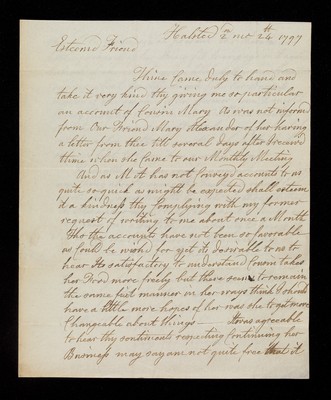 Halsted 2nd mo 24th 1797
Esteemed Friend
Thine came duly to hand and
take it very kind thy giving me so particular
an account of Cousin Mary was not informed
from Our Friend Mary Alexander of her having
a letter from thee till several days after I receiv'd
thine when she came to our Monthly Meeting
And as M A has not convey'd accounts to us
quite so quick as might be expected shall esteem
it a kindness thy Complying with my former
request of writing to me about once a Month
Tho the accounts have not been so favorable
as could be wish'd for yet its desirable to us to
hear Its satisfactory to understand Cousin takes
her Food more freely but there seems to remain
the same fix'd manner in her ways think I should
have a little more hopes of her was she to get more
Changeable about things — It was agreeable
to hear thy sentiment respecting Continuing her
Business may say am not quite free that it